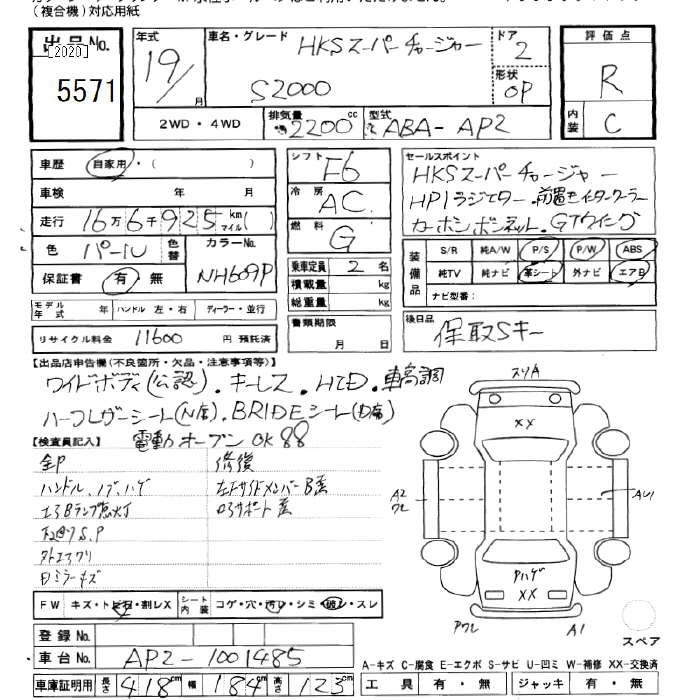 (複合機)対応用紙
出品No.
[2020]
5571
年式
19/
月
車名・グレード
HKSスーパーチャージャー
S2000
ドア
2
形状
OP
評価点
R
内装
C
2WD・4WD
排気量
2200
cc
型式
ABA-AP2
車歴
自家用・( )
車検
年 月
走行
16万6千925
km
マイル( )
色
パール
色替
カラーNo.
NH609P
保証書
有・無
モデル年式
年
ハンドル 左・右
ディーラー・並行
リサイクル料金
11600
円
預託済
シフト
F6
冷房
AC
燃料
G
乗車定員 2 名
積載量 kg
総重量 kg
書類期限
月 日
セールスポイント
HKSスーパーチャージャー
HPIラジエター、前置きインタークーラー
カーボンボンネット、GTウイング
装備品
S/R 純A/W P/S P/W ABS
純TV 純ナビ 革シート 外ナビ エアB
ナビ型番:
後日品
保取Sキー
【出品店申告欄(不良箇所・欠品・注意事項等)】
ワイドボディ(公認)・キーレス・HID・車高調
ハーフレザーシート(N席)、BRIDEシート(D席)
電動オープンOK 88
【検査員記入】
修復
ハンドル、ノブ、ハゲ
左Fサイドメンバー
サポート
エアBランプ点灯
S.P
Dミラーキズ
スリA
XX
A2
AU1
Pハゲ
XX
A1
スペア
FW
キズ・トビ石・割レX
シート内装
コゲ・穴・汚レ・シミ・破レ・スレ
登録No.
車台No.
AP2-1001485
車庫証明用
長さ 418 cm
幅 184 cm
高さ 123 cm
A-キズ C-腐食 E-エクボ S-サビ U-凹ミ W-補修 XX-交換済
工具 有・無
ジャッキ 有・無